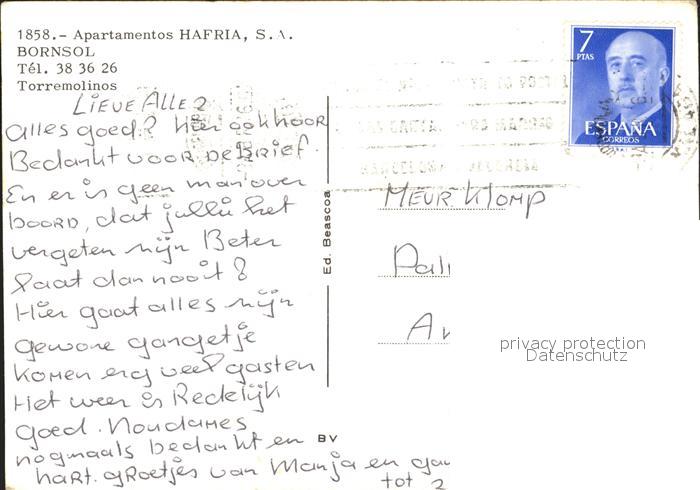 1858.- Apartamentos HAFRIA, S. A.
BORNSOL
Tél. 38 36 26
Torremolinos
7
PTAS
ESPAÑA
CORREOS
LIEVE ALLE 2
alles goed? Hier ook hoor
Bedankt voor de Brief.
En er is geen man over
boord, dat jullie het
vergeten zijn Beter
laat dan nooit!
Hier gaat alles zijn
gewone gangetje
Komen erg veel gasten
Het weer is Redelijk
goed. Nou dames
nogmaals bedankt en
hart. groetjes van Manja en
tot 2
Ed. Beascoa
BV
MEVR. Klomp
Pali
Av
privacy protection
Datenschutz